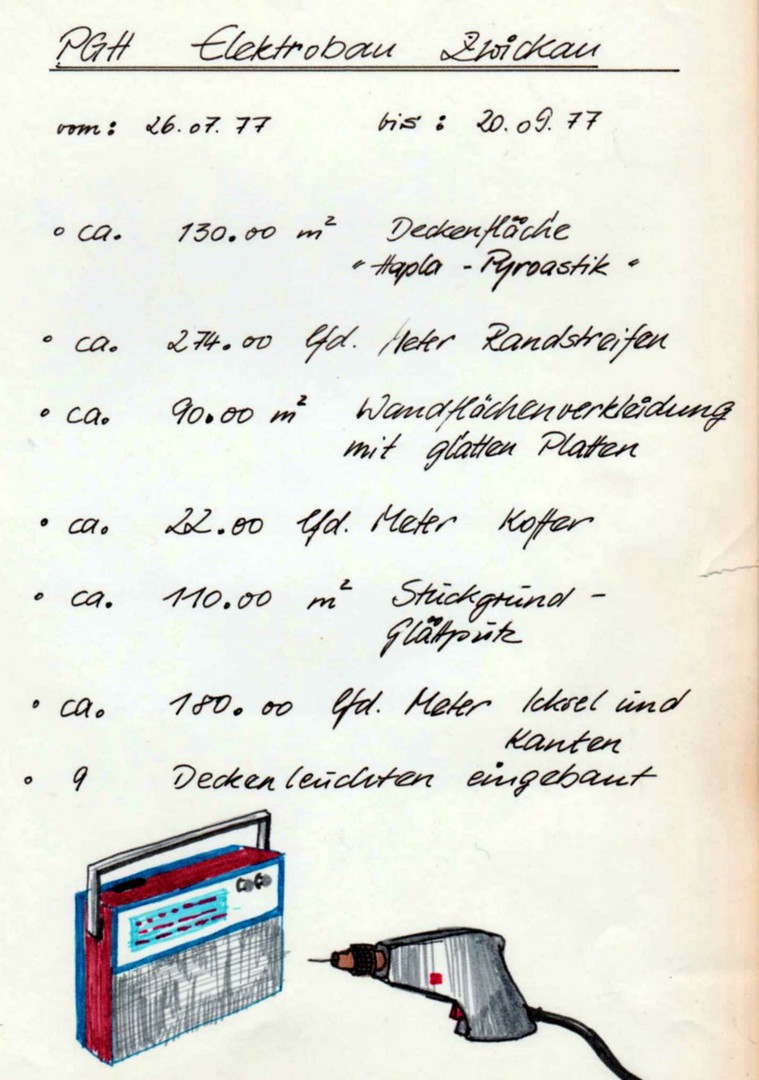 PGH Elektrobau Zwickau
vom: 26.07.77 bis: 20.09.77
° ca. 130.00 m² Deckenfläche
"Hapla - Pyroastik"
° ca. 274.00 lfd. Meter Randstreifen
° ca. 90.00 m² Wandflächenverkleidung
mit glatten Platten
° ca. 22.00 lfd. Meter Koffer
° ca. 110.00 m² Stückgrund -
Glättputz
° ca. 180.00 lfd. Meter Icksel und
Kanten
° 9 Deckenleuchten eingebaut